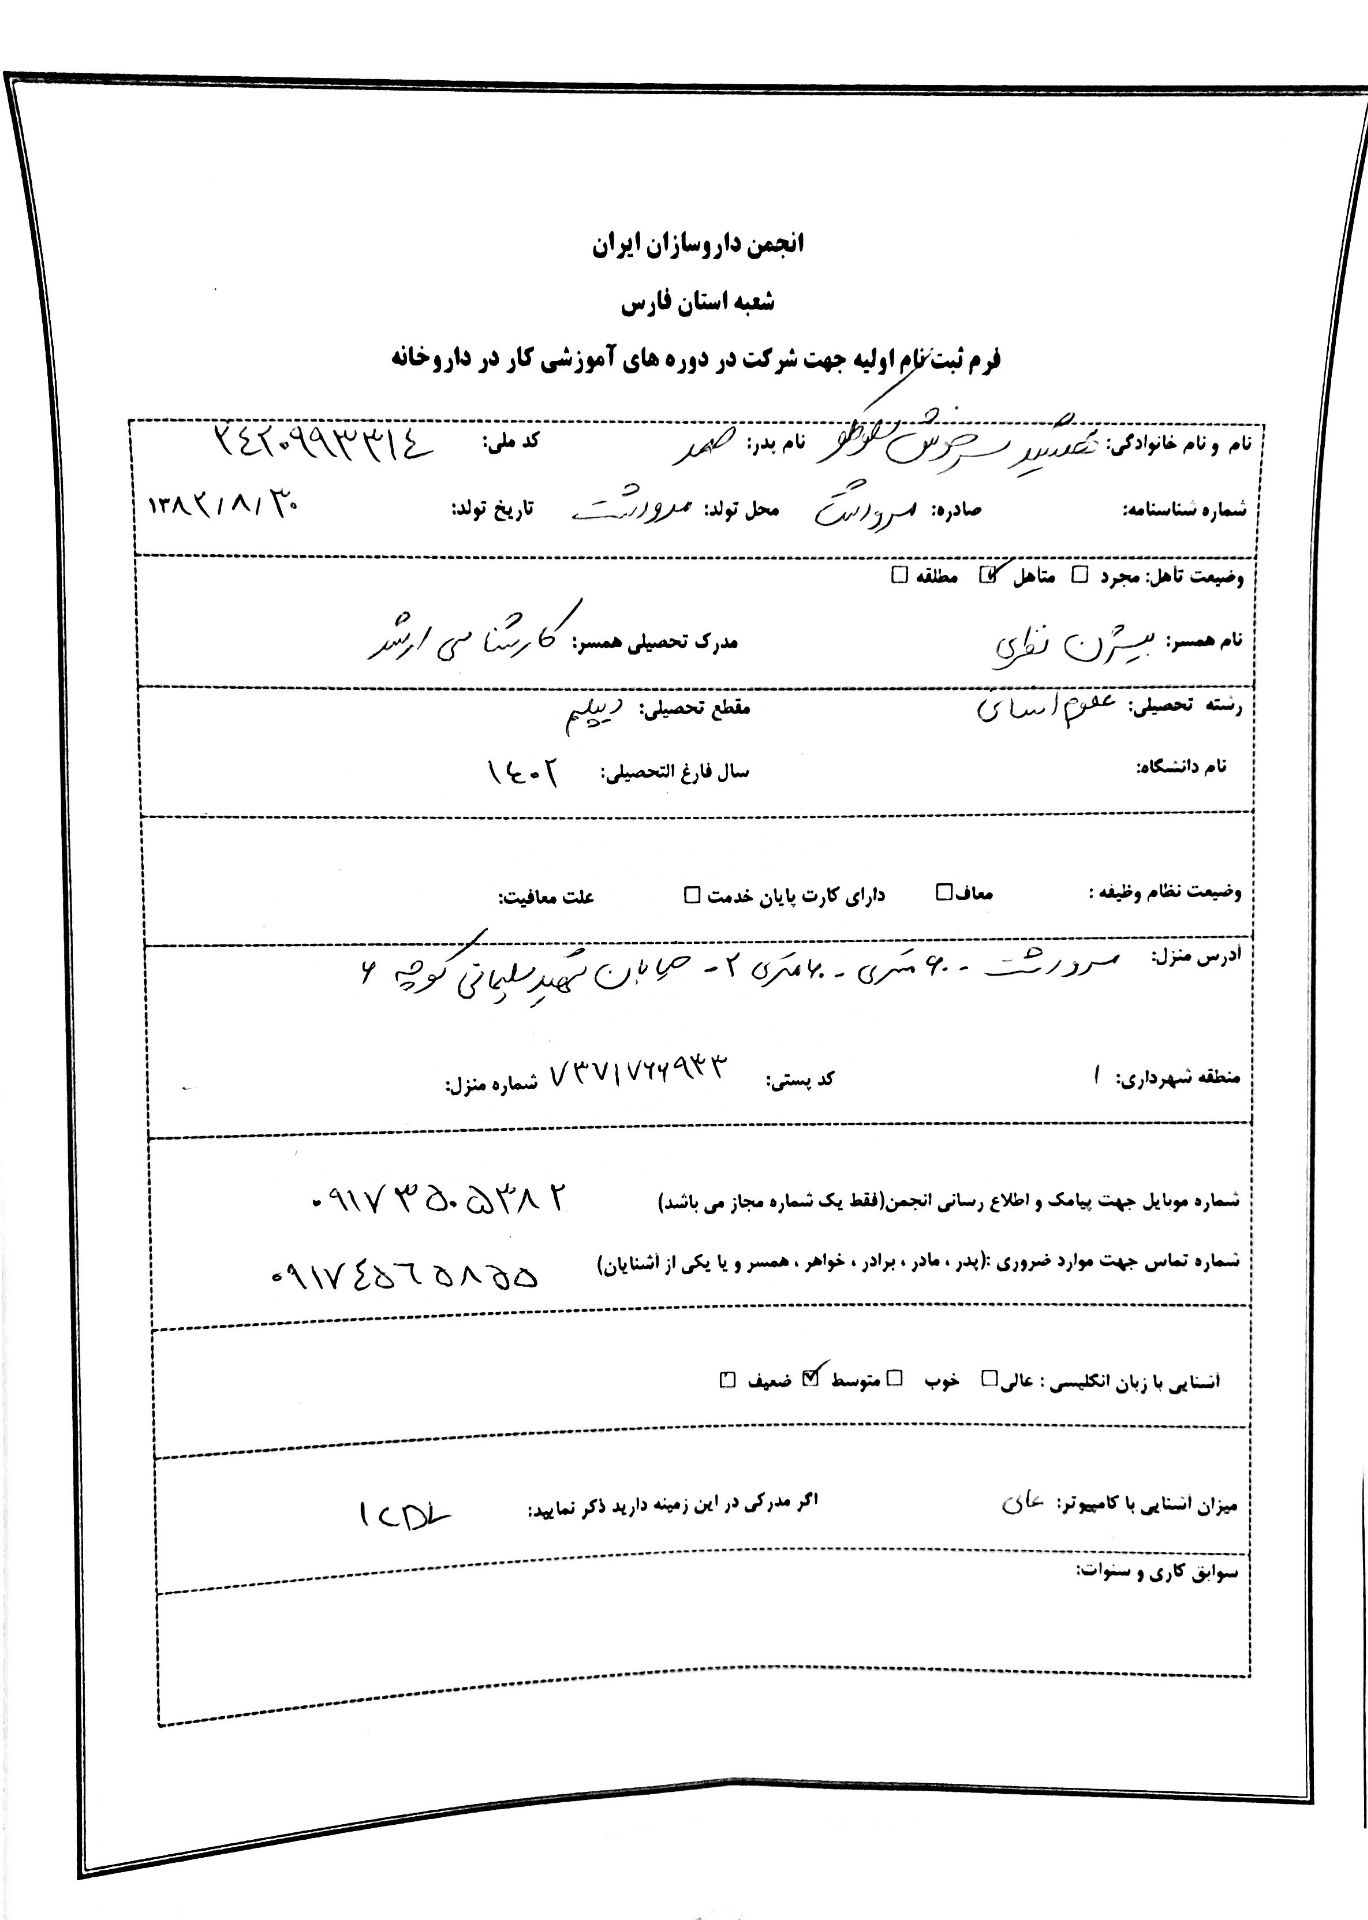 انجمن داروسازان ایران
شعبه استان فارس
فرم ثبت نام اولیه جهت شرکت در دوره های آموزشی کار در داروخانه
نام و نام خانوادگی: سرخوش نام پدر: صمد کد ملی: ۲۴۲۰۹۹۳۳۱۴
شماره شناسنامه: صادره: مرودشت محل تولد: مرودشت تاریخ تولد: ۱۳۸۲/۸/۳۰
وضیعت تاهل: مجرد □ متاهل ☑ مطلقه □
نام همسر: بیژن نظری مدرک تحصیلی همسر: کارشناسی ارشد
رشته تحصیلی: علوم انسانی مقطع تحصیلی: دیپلم
نام دانشگاه: سال فارغ التحصیلی: ۱۴۰۲
وضیعت نظام وظیفه : معاف □ دارای کارت پایان خدمت □ علت معافیت:
آدرس منزل: مرودشت - ۶۰ متری - ۲۰ متری ۲ - خیابان شهید سلیمانی کوچه ۶
منطقه شهرداری: ۱ کد پستی: ۷۳۷۱۷۶۶۹۳۳ شماره منزل: -
شماره موبایل جهت پیامک و اطلاع رسانی انجمن(فقط یک شماره مجاز می باشد) ۰۹۱۷۳۵۰۵۳۸۲
شماره تماس جهت موارد ضروری :(پدر ، مادر ، برادر ، خواهر ، همسر و یا یکی از آشنایان) ۰۹۱۷۴۵۶۵۸۵۵
آشنایی با زبان انگلیسی : عالی □ خوب □ متوسط ☑ ضعیف □
میزان آشنایی با کامپیوتر: عالی اگر مدرکی در این زمینه دارید ذکر نمایید: ICDL
سوابق کاری و سنوات: